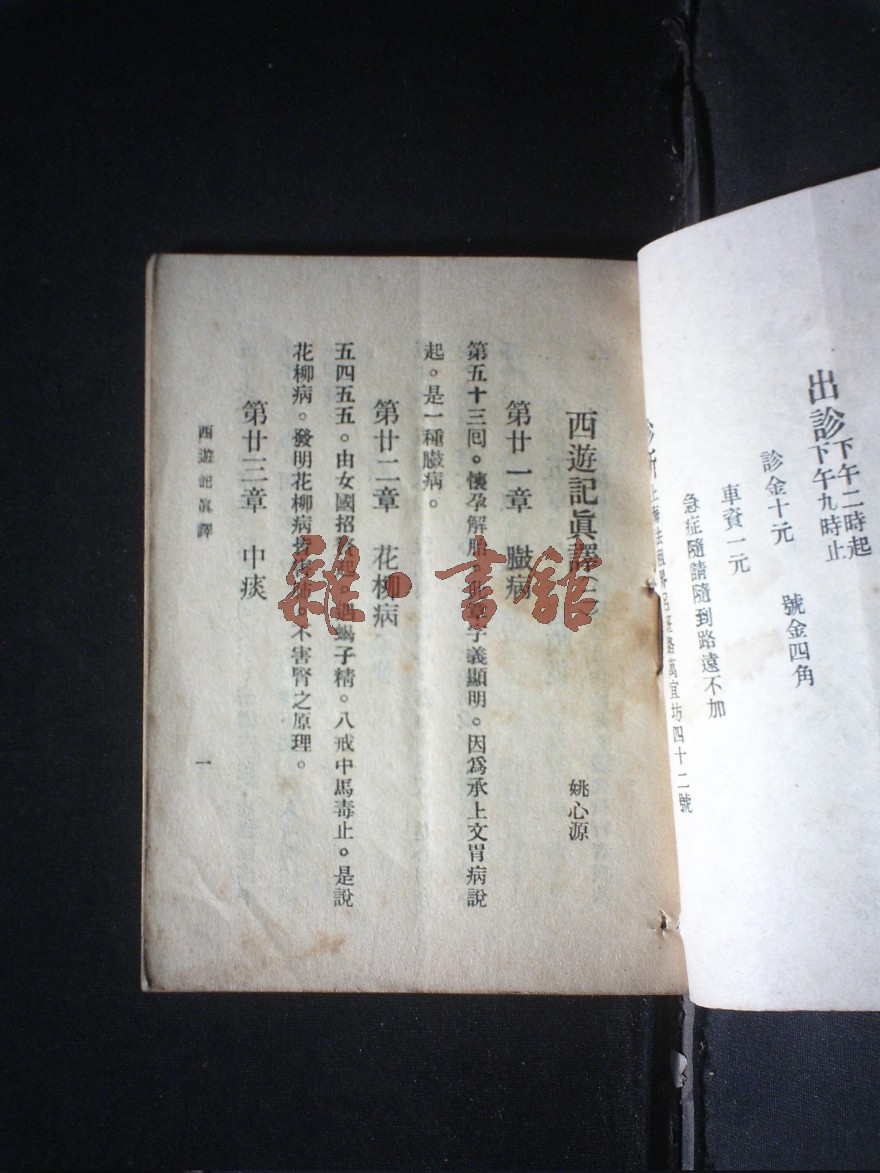 出診 下午二時起
下午九時止
診金十元 號金四角
車資一元
急症隨請隨到路遠不加
診所上海法租界呂班路萬宜坊四十二號
西遊記眞譯(二) 姚心源
第廿一章 臌病
第五十三回。懷孕解胎。字義顯明。因爲承上文胃病說
起。是一種臌病。
第廿二章 花柳病
五四五五。由女國招。遇蝎子精。八戒中馬毒止。是說
花柳病。發明花柳病。不害腎之原理。
第廿三章 中痰
西遊記眞譯
一
雜·書館